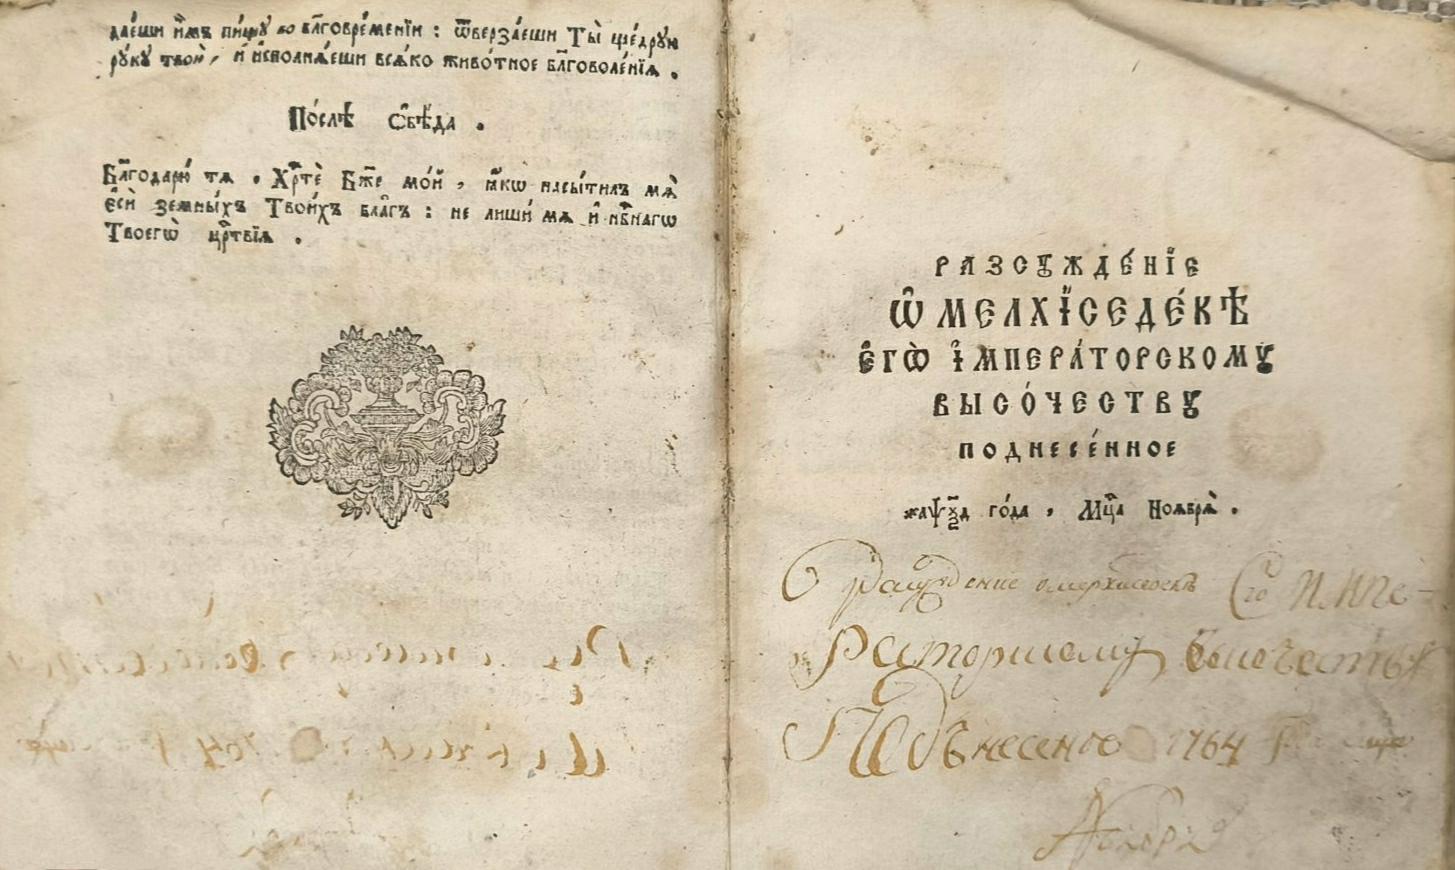 дае́ши и҆̀мъ пи́щꙋ во бл҃говре́менїи : ѿверза́еши Ты̀ ще́дрꙋю
рꙋ́кꙋ твою̀, и҆ и҆сполнѧ́еши всѧ́ко живо́тное бл҃говоле́нїѧ .
По́слѣ ѻ҆бѣ́да .
Бл҃годарю́ тѧ . Хрⷭ҇тѐ Бж҃е мо́й , ꙗ҆́кѡ насы́тилъ мѧ̀
є҆сѝ земны́хъ Твои́хъ бла̑гъ : не лиши́ мѧ и҆ нбⷭ҇нагѡ
Твоегѡ̀ црⷭ҇твїѧ .
РАЗСꙊЖДЕ́НЇЕ
Ѡ҆ МЕЛХЇСЕДЕ́КѢ
Е҆ГѠ̀ И҆МПЕРА́ТОРСКОМꙊ
ВЫСО́ЧЕСТВꙊ
ПОДНЕСЕ́ННОЕ
҂аѱ҃ѯд го́да , Мцⷭ҇а Ноѧбрѧ̀ .
О разсуждение омелхиседекѣ Его Импе-
Раторскому высочеству
Подънесеное 1764 Г
Ноября